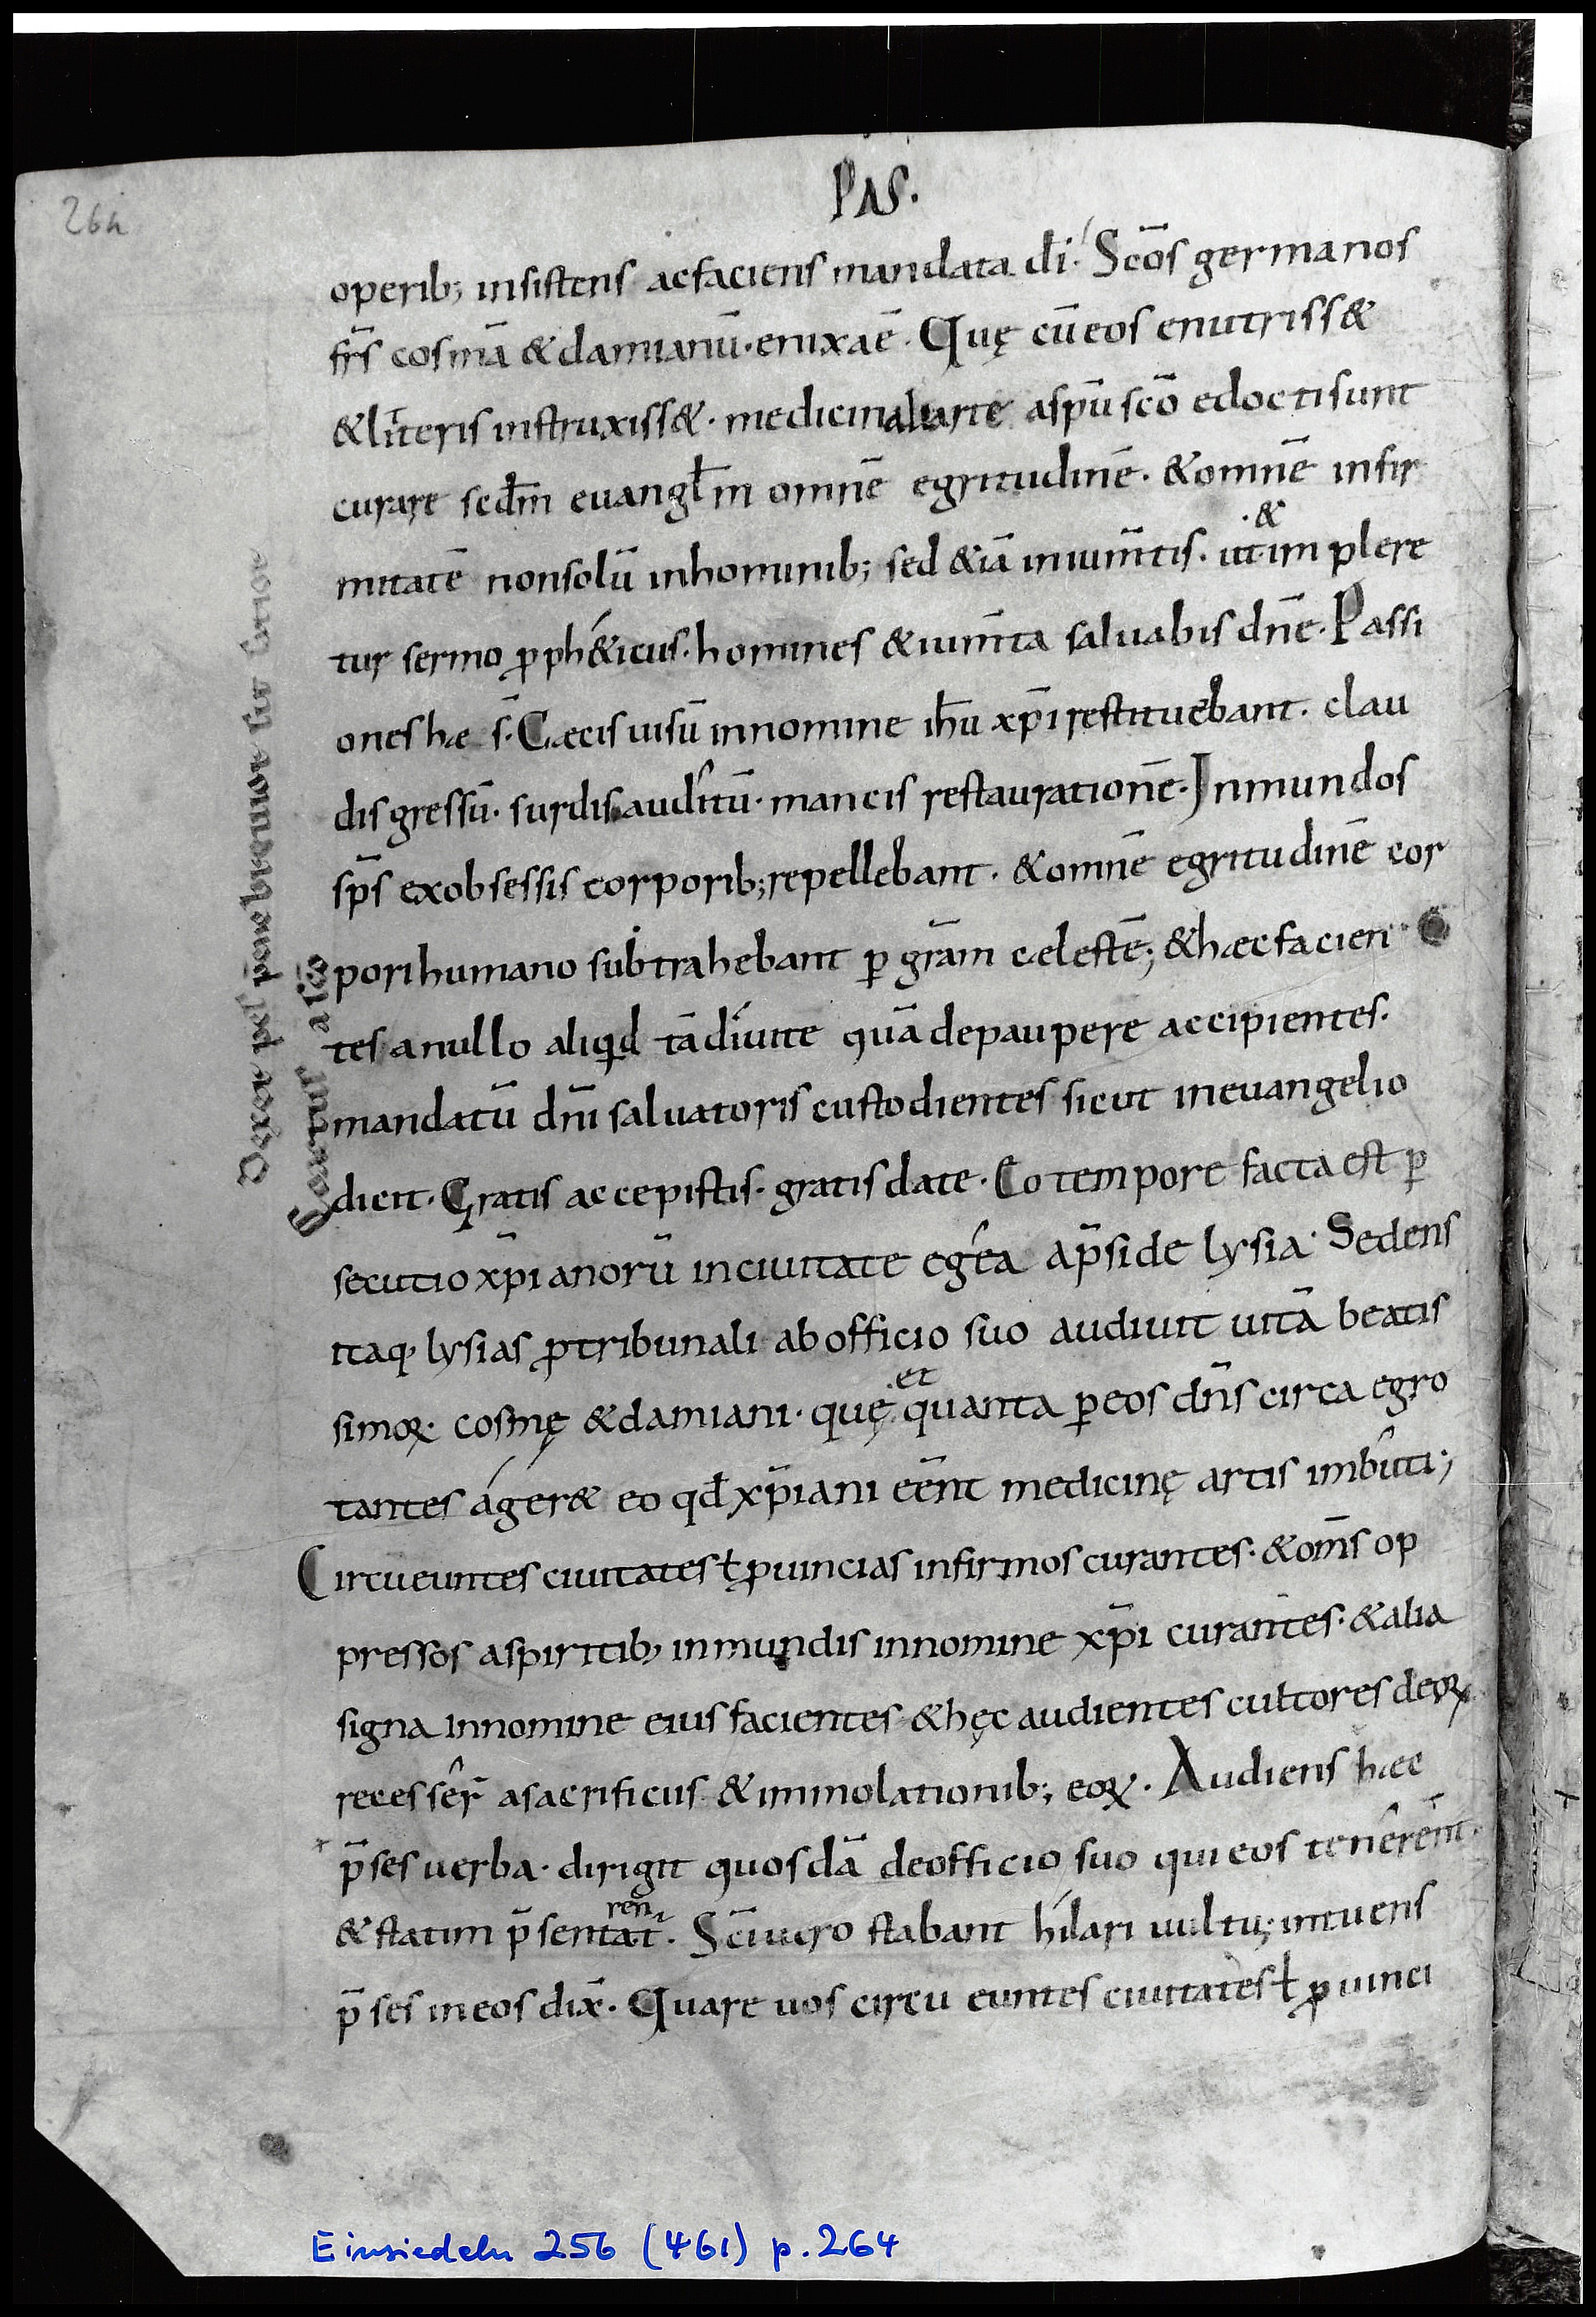 264
PAS.
operib; insistens ac faciens mandata di̅. Sco̅s germanos
fr̅s cosma̅ & damianu̅. enixa e̅. Quę cu̅ eos enutriss&
& litteris instruxiss&. medicinali arte a spu̅ sco̅ edocti sunt
curare scdm̅ evangl̅m omne̅ egritudine̅. & omne̅ infir
mitate̅ non solu̅ in hominib; sed &ia̅ in ium̅tis. ut & im pler&e
tur sermo ꝓph&icus. homines & ium̅ta saluabis dn̅e. Passi
ones hæ s̅. Cæcis uisu̅ in nomine ih̅u xp̅i restituebant. clau
dis gressu̅. surdis auditu̅. mancis restauratione̅. Inmundos
sp̅s ex obsessis corporib; repellebant. & omne̅ egritudine̅ cor
pori humano subtrahebant ꝑ gra̅m cęleste̅; & hæc facien
tes a nullo aliqid ta̅ diuite qua̅ de paupere accipientes.
mandatu̅ dn̅i saluatoris custodientes sicut in euangelio
dicit. Gratis accepistis. gratis date. Eo tempore facta est ꝑ
secutio xp̅ianoru̅ in ciuitate egea a p̅side lysia. Sedens
itaq. lysias ꝓ tribunali ab officio suo audiuit uita̅ beatis
simoꝝ cosmę & damiani. quę et quanta ꝑ eos dn̅s circa egro
tantes ager& eo qd̅ xp̅iani ee̅nt medicinę artis imbuti;
Circueuntes ciuitates ł ꝓuincias infirmos curantes. & om̅s op
pressos a spiritib; inmundis in nomine xp̅i curantes. & alia
signa in nomine eius facientes & hęc audientes cultores deoꝝ
recesser̅ a sacrificiis & immolationib; eoꝝ. Audiens hæc
p̅ses uerba. dirigit quosda̅ de officio suo qui eos tenere̅nt.
& statim p̅sentarent. Sc̅i uero stabant hilari uultu; intuens
p̅ses in eos dix̅. Quare uos circu euntes ciuitates ł ꝓuinci
Einsiedeln 256 (461) p. 264